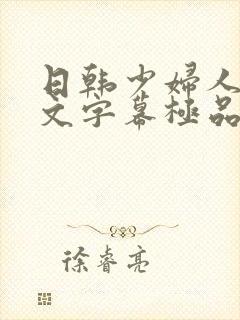 日韩少婦人
文字幕極品
徐睿亮